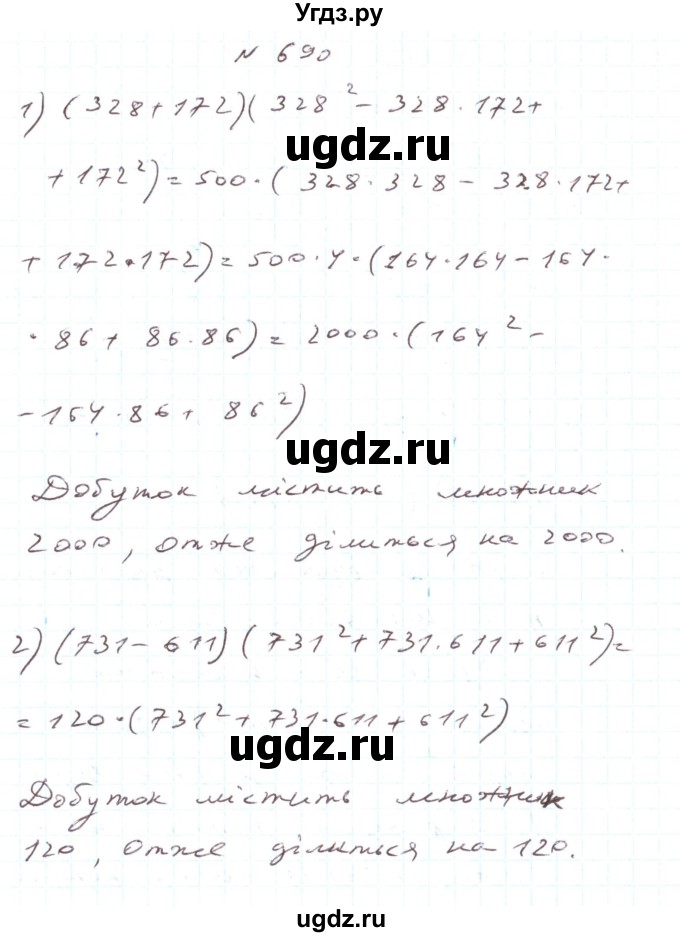 Угдз.ру
N 690
1) (328+172)(328² - 328·172+
ugdz.ru
+172²) = 500·(328·328 - 328·172+
+172·172) = 500·4·(164·164 - 164·
·86 + 86·86) = 2000·(164² -
-164·86 + 86²)
ugdz.ru
Добуток містить множник
2000, отже ділиться на 2000.
2) (731 - 611)(731² + 731·611 + 611²) =
= 120·(731² + 731·611 + 611²)
ugdz.ru
Добуток містить множник
120, отже ділиться на 120.
ugdz.ru